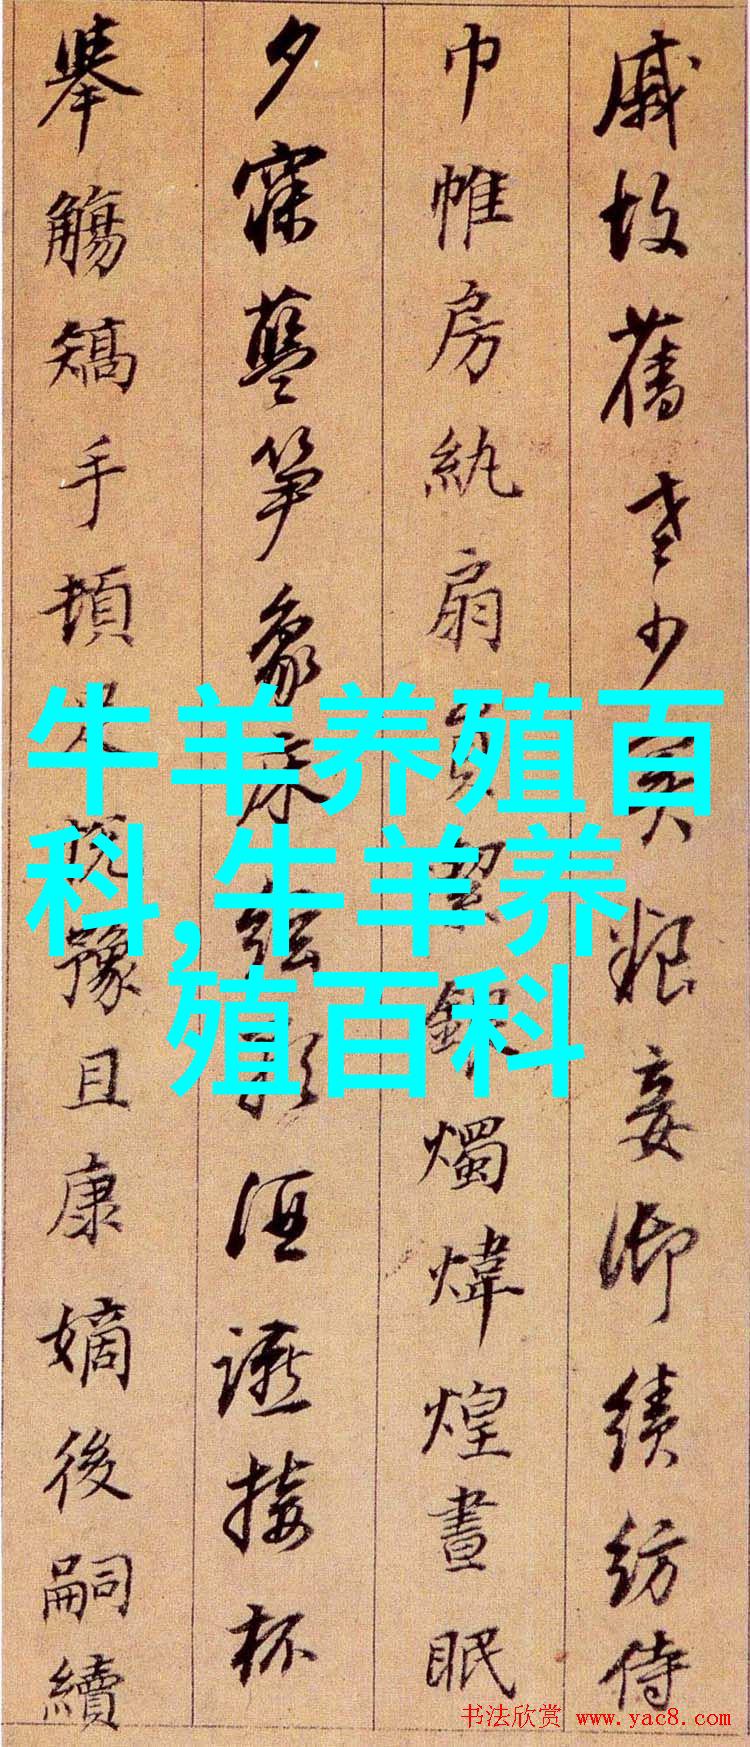 戚故舊老少異粮妾御績紡侍
巾帷房紈扇員銀燭煒煌晝眠
夕寐藍笋象床絃歌酒讌接杯
舉觴矯手頓足悅豫且康嫡後嗣續
牛羊养殖百
科,牛羊养
殖百科
书法欣赏 www.yac8.com